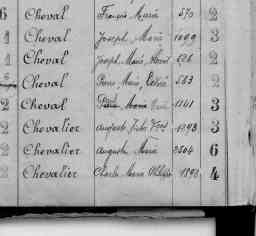 6 Cheval François Marie 570 2
1 Cheval Joseph Marie 1099 3
1 Cheval Joseph Marie 526 2
Cheval Pierre Marie 583 2
2 Cheval Marie 1141 3
2 Chevalier Auguste 1393 3
2 Chevalier Auguste Marie 2504 6
2 Chevalier Charles Marie 1893 4